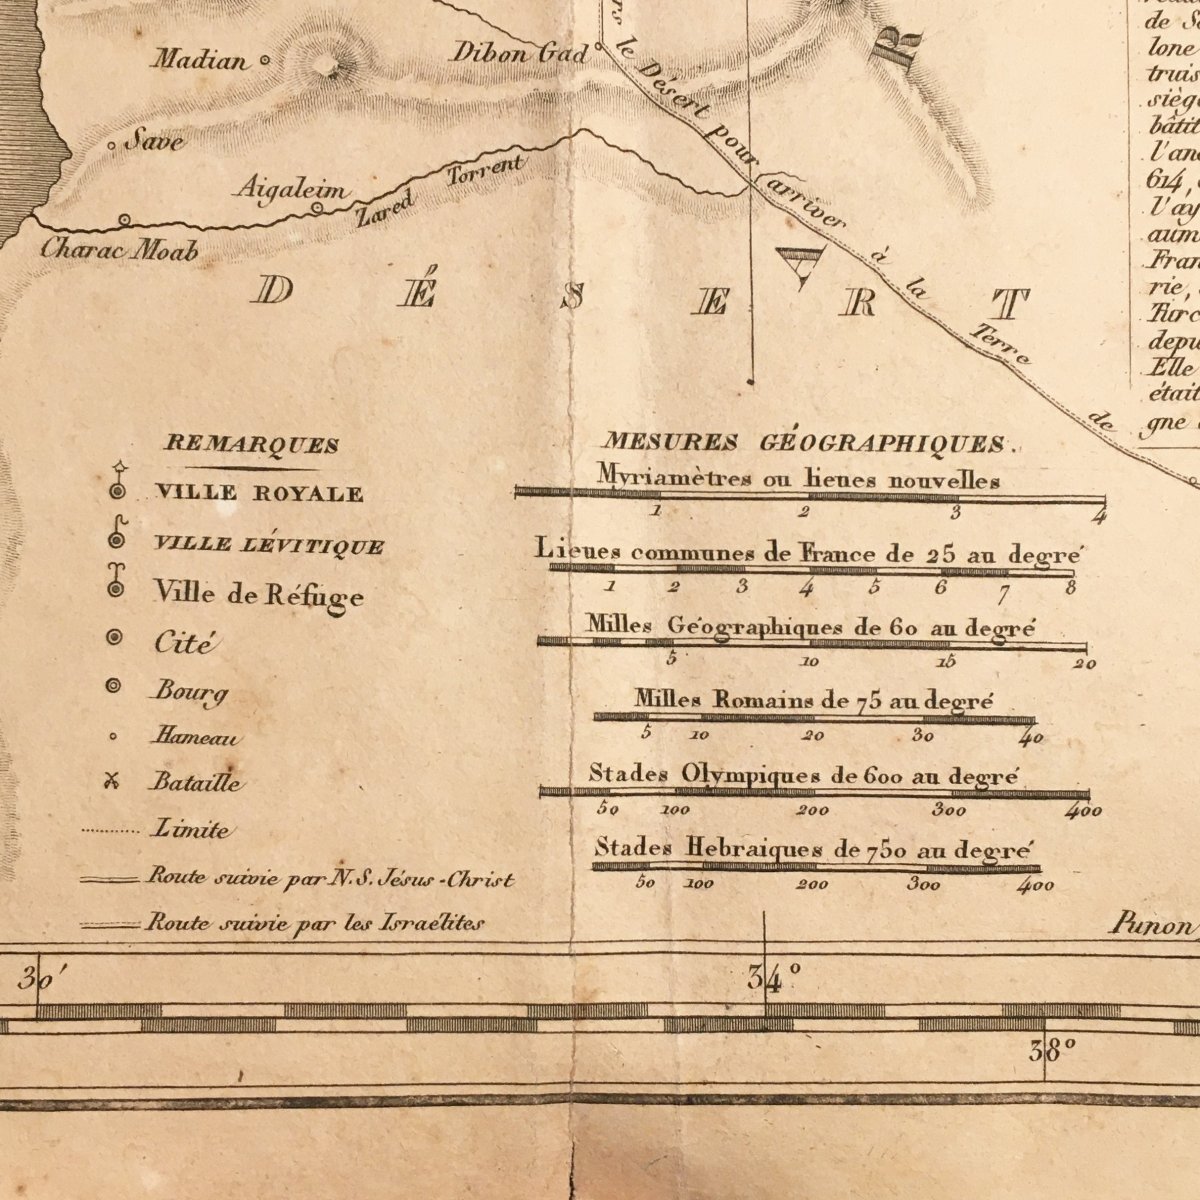 Madian
Dibon Gad
rs le Désert pour arriver à la Terre de
R
Save
Aigaleim
Zared Torrent
Charac Moab
DÉSERT
A
de
lone
truis
siège
bâtit
l'an
614,
l'ay
aum
Fran
rie,
Turc
depu
Elle
était
gne
REMARQUES
VILLE ROYALE
VILLE LÉVITIQUE
Ville de Réfuge
Cité
Bourg
Hameau
Bataille
Limite
Route suivie par N.S. Jésus-Christ
Route suivie par les Israélites
MESURES GÉOGRAPHIQUES.
Myriamètres ou lieues nouvelles
1 2 3 4
Lieues communes de France de 25 au degré
1 2 3 4 5 6 7 8
Milles Géographiques de 60 au degré
5 10 15 20
Milles Romains de 75 au degré
5 10 20 30 40
Stades Olympiques de 600 au degré
50 100 200 300 400
Stades Hebraiques de 750 au degré
50 100 200 300 400
Punon
30' 34°
38°